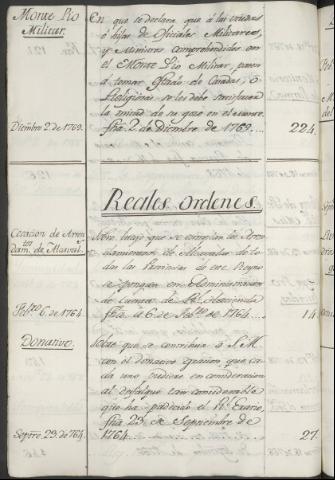 Monte Pío
Militar.
En que se declara que á las viudas
è hijas de Oficiales Militares,
y Ministros comprehendidos en
el Monte Pío Militar, para
tomar estado de Casadas, ó
Religiosas se les debe
la de se que en él
fha 2. de Diciembre de 1769....
Diciembre 2. de 1769.
224.
Reales Ordenes.
Cesacion de Arren
dam.tos de Alcavalas.
Sobre que se cumplan los Arren
damientos de Alcavalas de to
das las Provincias de este Reyno
se pongan en Administracion
de Cuenta de Rl. Hacienda
fha a 6 de Febro. de 1764....
Feb.ro 6. de 1764.
14.
Donativo.
Sobre que se contribuia à S.M.
con el donativo gracioso que ca
da uno pudiese en consideracion
al desfalque tan considerable
q.e ha padecido el Rl. Erario,
fha 29. de Septiembre de
1764....
Septre. 29. de 1764.
27.